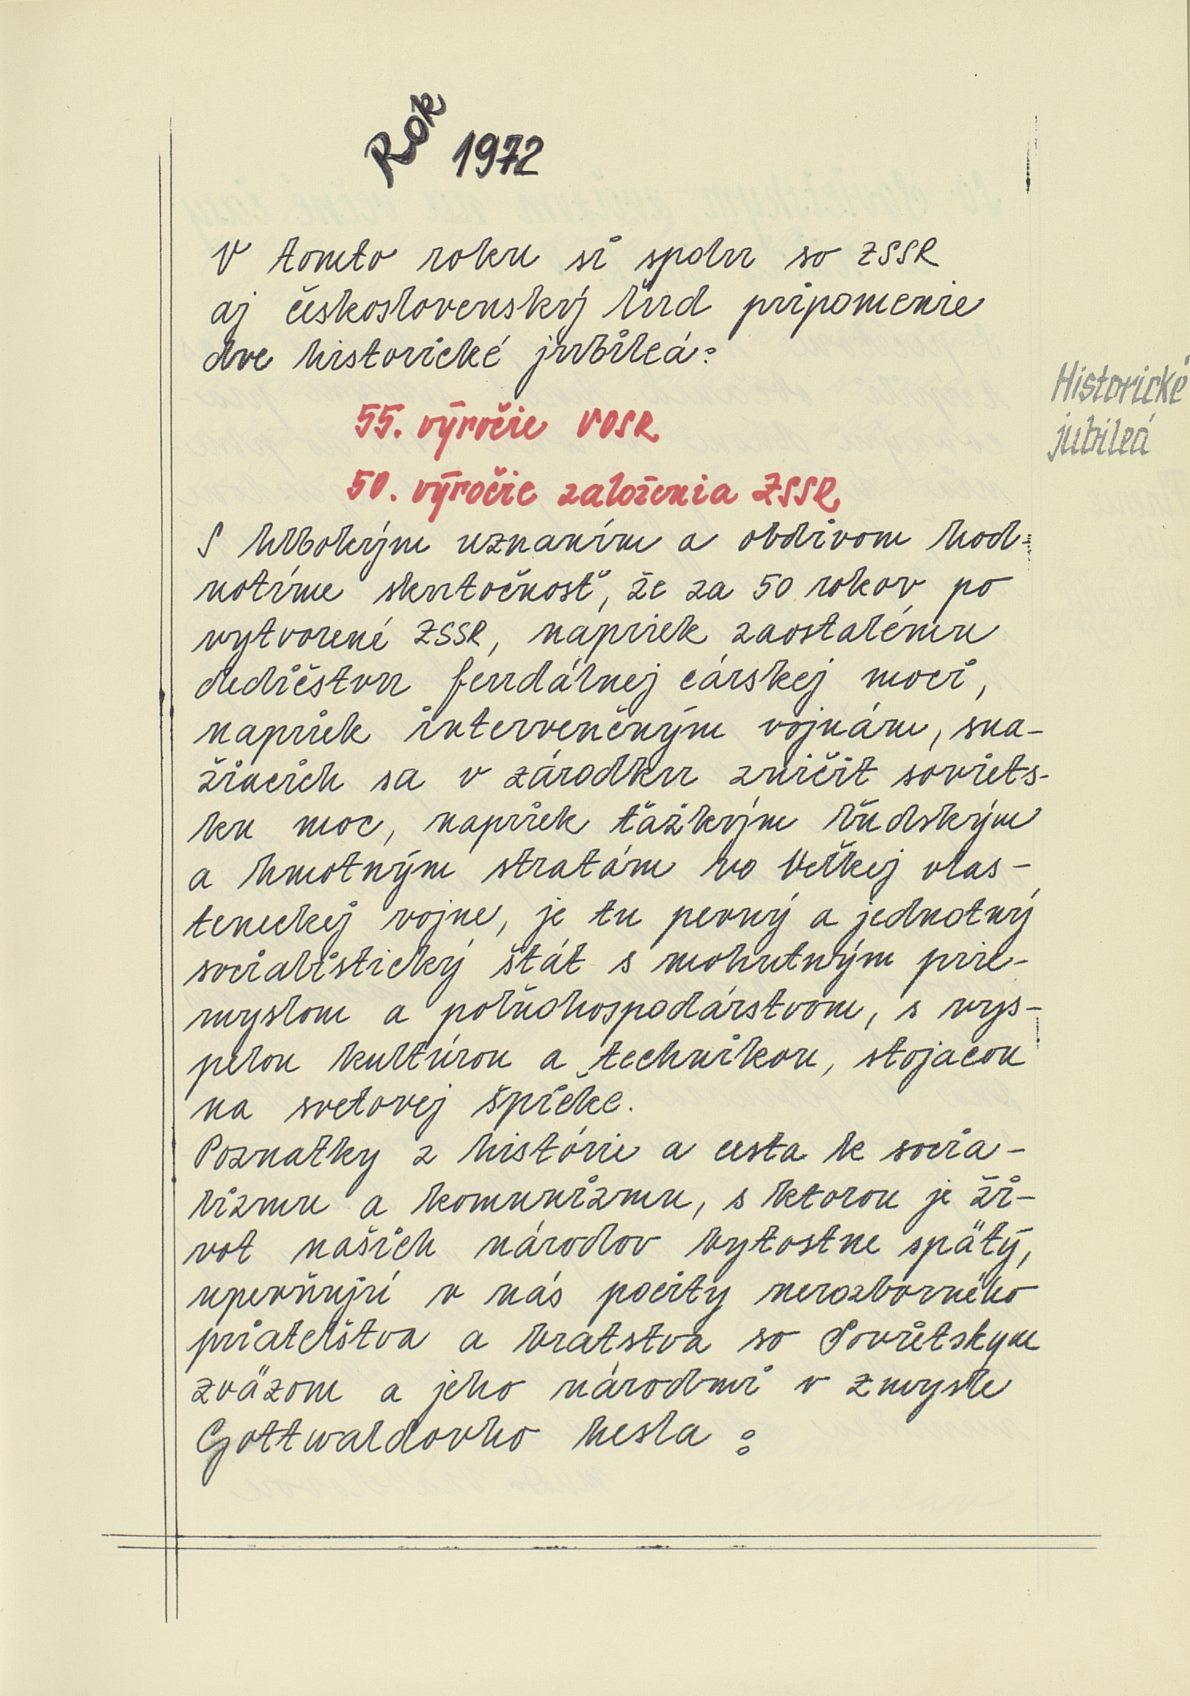 Rok 1972
V tomto roku si spolu so ZSSR
aj československý ľud pripomenie
dve historické jubileá:
Historické
jubileá
55. výročie VOSR
50. výročie založenia ZSSR
S hlbokým uznaním a obdivom hod-
notíme skutočnosť, že za 50 rokov po
vytvorení ZSSR, napriek zaostalému
dedičstvu feudálnej cárskej moci,
napriek intervenčným vojnám, sna-
žiacich sa v zárodku zničiť soviets-
ku moc, napriek ťažkým ľudským
a hmotným stratám vo Veľkej vlas-
teneckej vojne, je tu pevný a jednotný
socialistický štát s mohutným prie-
myslom a poľnohospodárstvom, s vys-
pelou kultúrou a technikou, stojacou
na svetovej špičke.
Poznatky z histórie a cesta k socia-
lizmu a komunizmu, s ktorou je ži-
vot našich národov bytostne spätý,
upevňujú v nás pocity nerozborného
priateľstva a bratstva so Sovietskym
zväzom a jeho národmi v zmysle
Gottwaldovho hesla :